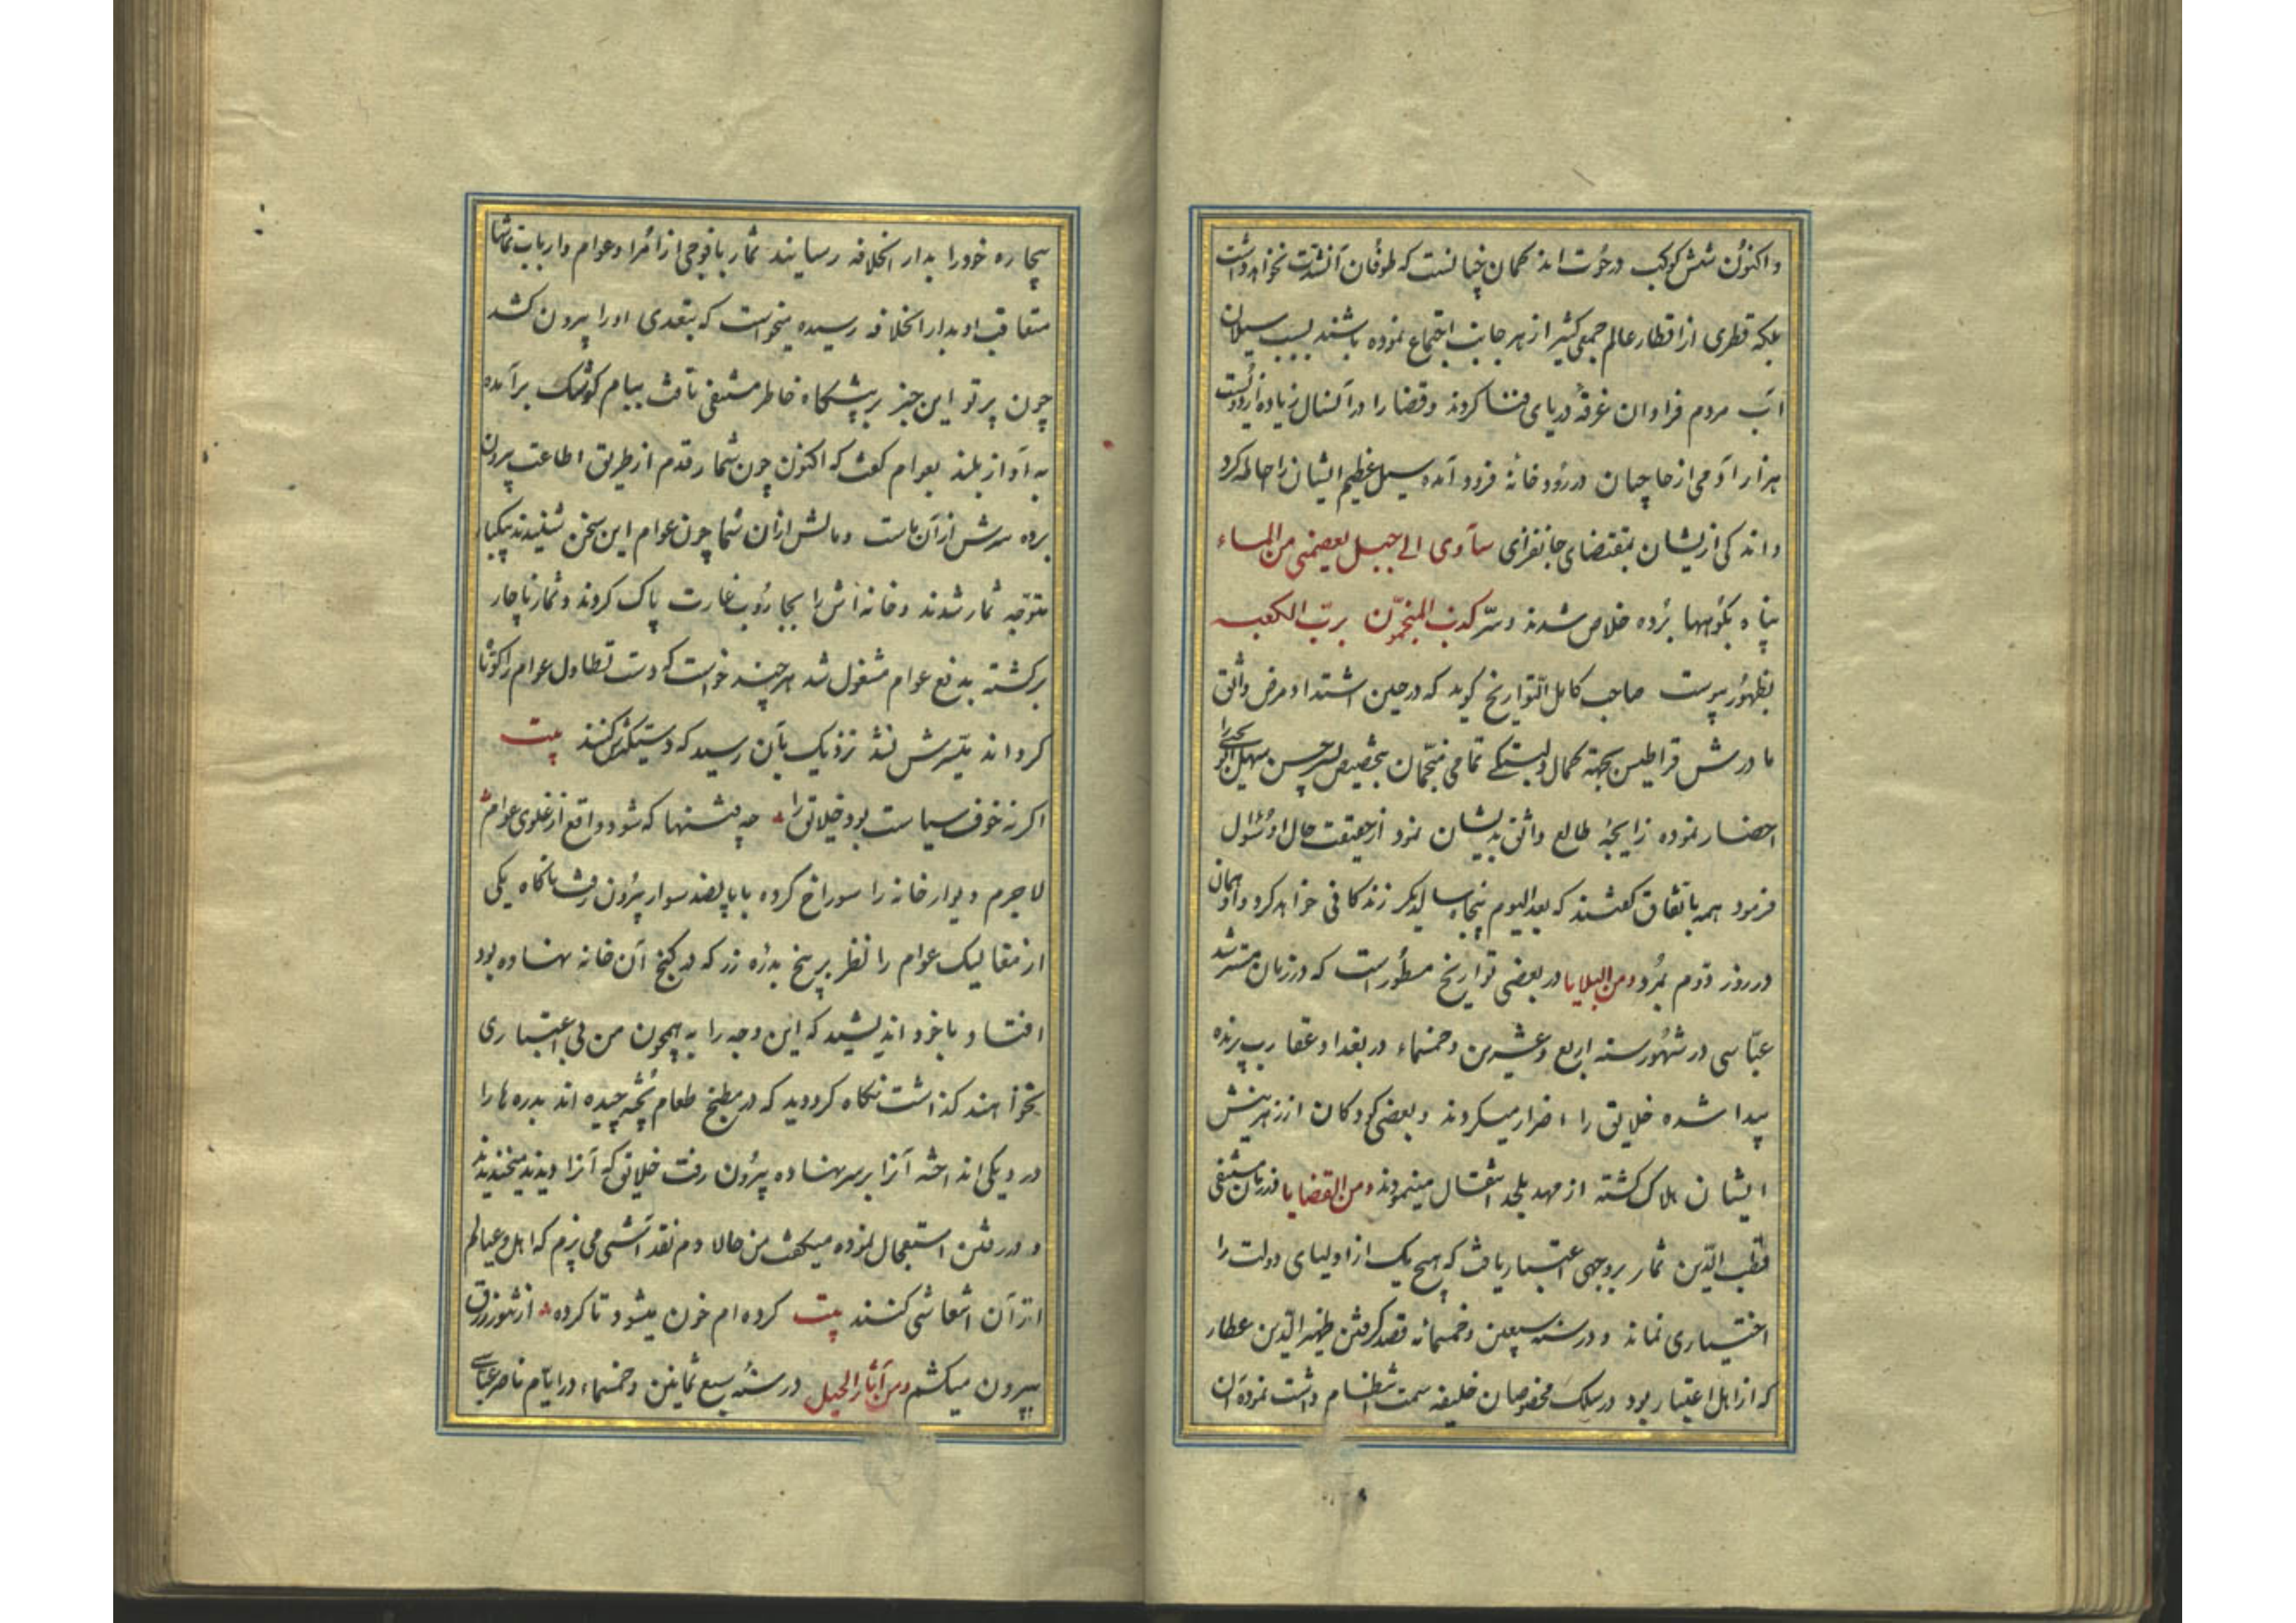 و اکنون شش کوکب در حوت اند گمان چنانست که طوفان آنشدت نخواهد داشت
بلکه قطری از اقطار عالم جمعی کثیر از هر جانب اجتماع نموده باشند بسبب سیلان
آب مردم فراوان غرقهٔ دریای فنا کردند و قضا را در آنسال زیاده از دویست
هزار آدمی از حاجیان در رودخانهٔ فرود آمده سیل عظیم ایشان را احاطه کرد
و اندکی ازیشان بمقتضای جانفزای سآوی الی جبل یعصمنی من الماء
پناه بکوهها برده خلاص شدند و سرّ کذب المنجّمون بربّ الکعبه
بظهور پیوست صاحب کامل التّواریخ گوید که در حین اشتداد مرض واثق
مادرش قراطیس بجهة کمال دلبستگی تمامی منجّمان بتخصیص حسن سهل را
احضار نموده زایجهٔ طالع واثق بدیشان نمود از حقیقت حال او سؤال
فرمود همه باتّفاق گفتند که بعد الیوم پنجاه سال دیگر زندگانی خواهد کرد و او همان
در روز دوم بمرد ومن البلایا در بعضی تواریخ مسطور است که در زمان مسترشد
عبّاسی در شهور سنه اربع و عشرین و خمسماء در بغداد عقارب پرنده
پیدا شده خلایق را اضرار میکردند و بعضی کودکان از زهر نیش
ایشان هلاک کشته از مهد بلحد انتقال مینمودند ومن القضایا در زمان مستضی
قطب الدّین ثمار بروجهی اعتبار یافت که هیچ یک از اولیای دولت را
اختیاری نماند و در سنه سبعین و خمسمائه قصد گرفتن ظهیر الدّین عطار
که از اهل اعتبار بود در سلک مخصوصان خلیفه سمت انتظام داشت نمود آن
بیچاره خود را بدار الخلافه رسانید ثمار با فوجی از امرا و عوام و ارباب تماشا
متعاقب او بدار الخلافه رسیده میخواست که بتعدی او را بیرون کشد
چون پرتو این خبر بر پیشگاه خاطر مستضی تافت ببام کوشک برآمده
به آواز بلند بعوام گفت که اکنون چون ثمار قدم از طریق اطاعت بیرون
برده سرش از آن ماست و مالش از آن شما چون عوام این سخن شنیدند بیکبار
متوجّه ثمار شدند و خانه اش را بجاروب غارت پاک کردند و ثمار ناچار
برگشته بدفع عوام مشغول شد هر چند خواست که دست تطاول عوام را کوتا
گرداند میّسرش نشد نزدیک بآن رسید که دستگیرش کنند بیت
اگر نه خوف سیاست بود خلایق را چه فتنها که شود واقع از غلوی عوام
لاجرم دیوار خانه را سوراخ کرده با پانصد سوار بیرون رفت ناگاه یکی
از مفالیک عوام را نظر بر پنج بدره زر که در کنج آن خانه نهاده بود
افتاد با خود اندیشید که این وجه را به همچون من بی اعتباری
نخواهند گذاشت نگاه کرد دید که در مطبخ طعام پخته چیده اند بدره ها را
در دیکی انداخته آنرا بر سر نهاده بیرون رفت خلایق که آنرا دیدند میخندیدند
و در رفتن استعجال نموده میگفت من حالا دم نقد آشی می برم که اهل و عیالم
از آن انتعاشی کنند بیت کرده ام خون میشود تا کرده از تنور رزق
بیرون میکشم ومن آثار الحیل در سنهٔ سبع ثمانین و خمسماء در ایّام ناصر عباسی